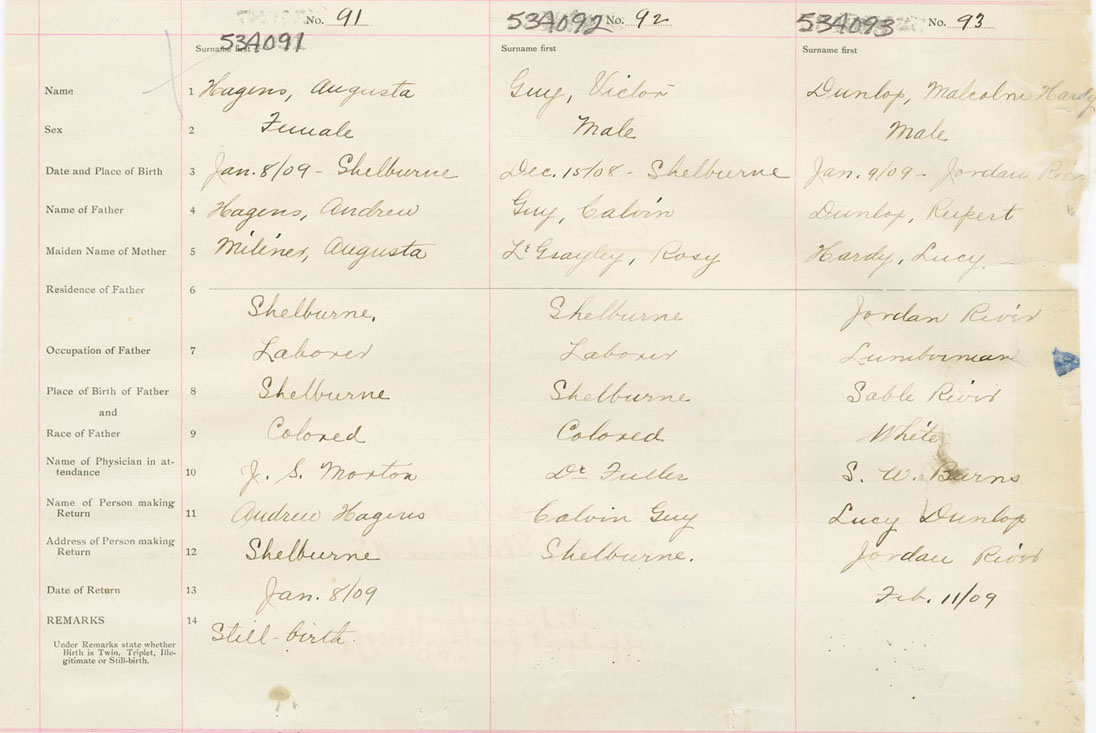 No. 91 534092 No. 92 534093 No. 93
534091
Surname first Surname first Surname first
Name 1 Hagens, Augusta Guy, Victor Dunlop, Malcolme Hardy
Sex 2 Female Male Male
Date and Place of Birth 3 Jan. 8/09 - Shelburne Dec. 15/08 - Shelburne Jan. 9/09 - Jordan River
Name of Father 4 Hagens, Andrew Guy, Calvin Dunlop, Rupert
Maiden Name of Mother 5 Miliner, Augusta Rosy Hardy, Lucy
Residence of Father 6
Shelburne, Shelburne Jordan River
Occupation of Father 7 Laborer Laborer Lumberman
Place of Birth of Father 8 Shelburne Shelburne Sable River
and
Race of Father 9 Colored Colored White
Name of Physician in at-
tendance 10 J. S. Morton Dr Fuller S. W. Burns
Name of Person making
Return 11 Andrew Hagens Calvin Guy Lucy Dunlop
Address of Person making
Return 12 Shelburne Shelburne. Jordan River
Date of Return 13 Jan. 8/09 Feb. 11/09
REMARKS 14 Still-birth.
Under Remarks state whether
Birth is Twin, Triplet, Ille-
gitimate or Still-birth.